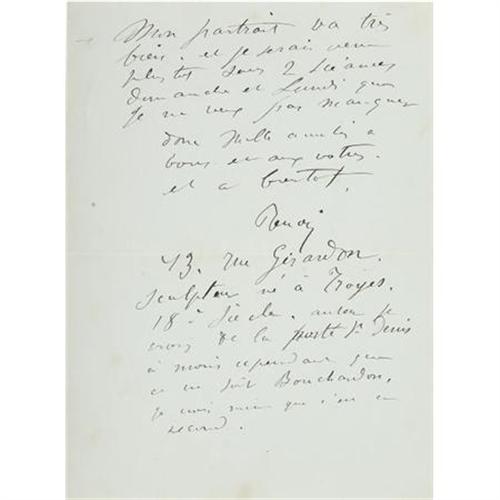 Mon portrait va très
bien. et je serais venu
plus tot sans 2 séances
dimanche et Lundi que
je ne veux pas manquer
donc mille amitiés a
vous et aux votres.
et a bientot.
Renoir
43. rue Girardon.
sculpteur né à Troyes.
18e siècle. auteur je
crois de la porte St Denis
à moins cependant que
ce ne soit Bouchardon.
je crois même que c'est ce
second.